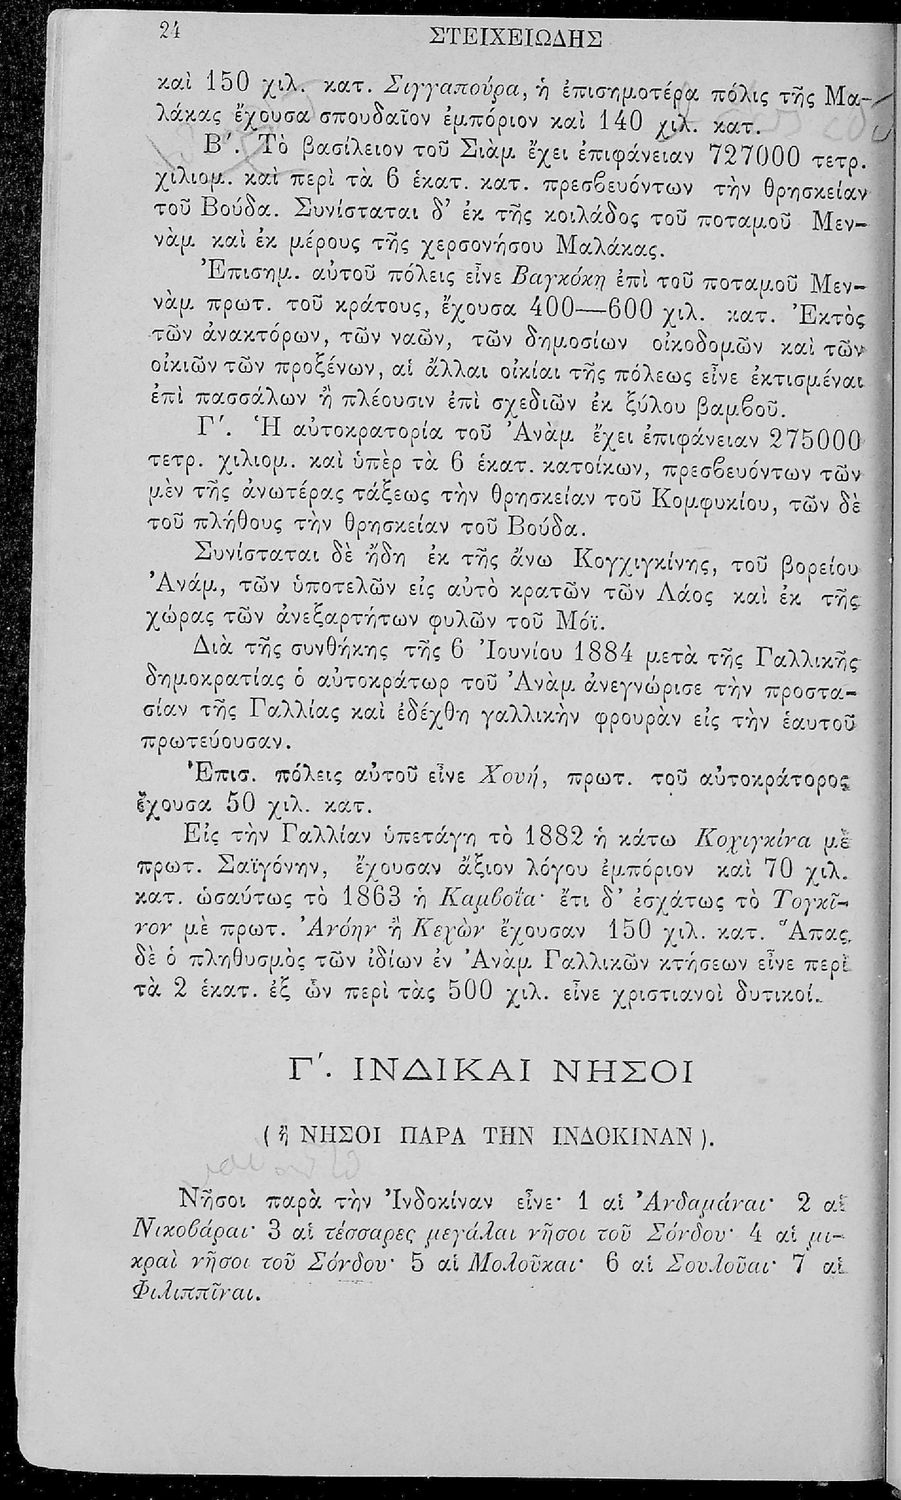 24
ΣΤΕΙΧΕΙΩΔΗΣ
καὶ 150 χιλ. κατ. Σιγγαπούρα, ἡ ἐπισημοτέρα πόλις τῆς Μα-
λάκας ἔχουσα σπουδαῖον ἐμπόριον καὶ 140 χιλ. κατ.
Β΄. Τὸ βασίλειον τοῦ Σιὰμ ἔχει ἐπιφάνειαν 727000 τετρ.
χιλιομ. καὶ περὶ τὰ 6 ἑκατ. κατ. πρεσβευόντων τὴν θρησκείαν
τοῦ Βούδα. Συνίσταται δ' ἐκ τῆς κοιλάδος τοῦ ποταμοῦ Μεν-
νὰμ καὶ ἐκ μέρους τῆς χερσονήσου Μαλάκας.
Ἐπισημ. αὐτοῦ πόλεις εἶνε Βαγκόκη ἐπὶ τοῦ ποταμοῦ Μεν-
νὰμ πρωτ. τοῦ κράτους, ἔχουσα 400—600 χιλ. κατ. Ἐκτὸς
τῶν ἀνακτόρων, τῶν ναῶν, τῶν δημοσίων οἰκοδομῶν καὶ τῶν
οἰκιῶν τῶν προξένων, αἱ ἄλλαι οἰκίαι τῆς πόλεως εἶνε ἐκτισμέναι
ἐπὶ πασσάλων ἢ πλέουσιν ἐπὶ σχεδιῶν ἐκ ξύλου βαμβοῦ.
Γ΄. Ἡ αὐτοκρατορία τοῦ Ἀνὰμ ἔχει ἐπιφάνειαν 275000
τετρ. χιλιομ. καὶ ὑπὲρ τὰ 6 ἑκατ. κατοίκων, πρεσβευόντων τῶν
μὲν τῆς ἀνωτέρας τάξεως τὴν θρησκείαν τοῦ Κομφυκίου, τῶν δὲ
τοῦ πλήθους τὴν θρησκείαν τοῦ Βούδα.
Συνίσταται δὲ ἤδη ἐκ τῆς ἄνω Κογχιγκίνης, τοῦ βορείου
Ἀνάμ, τῶν ὑποτελῶν εἰς αὐτὸ κρατῶν τῶν Λάος καὶ ἐκ τῆς
χώρας τῶν ἀνεξαρτήτων φυλῶν τοῦ Μόϊ.
Διὰ τῆς συνθήκης τῆς 6 Ἰουνίου 1884 μετὰ τῆς Γαλλικῆς
δημοκρατίας ὁ αὐτοκράτωρ τοῦ Ἀνὰμ ἀνεγνώρισε τὴν προστα-
σίαν τῆς Γαλλίας καὶ ἐδέχθη γαλλικὴν φρουρὰν εἰς τὴν ἑαυτοῦ
πρωτεύουσαν.
Ἐπισ. πόλεις αὐτοῦ εἶνε Χουή, πρωτ. τοῦ αὐτοκράτορος
ἔχουσα 50 χιλ. κατ.
Εἰς τὴν Γαλλίαν ὑπετάγη τὸ 1882 ἡ κάτω Κοχιγκίνα μὲ
πρωτ. Σαϊγόνην, ἔχουσαν ἄξιον λόγου ἐμπόριον καὶ 70 χιλ.
κατ. ὡσαύτως τὸ 1863 ἡ Καμβοΐα· ἔτι δ' ἐσχάτως τὸ Τογκῖ-
νον μὲ πρωτ. Ἀνόην ἢ Κεχὼν ἔχουσαν 150 χιλ. κατ. Ἅπας
δὲ ὁ πληθυσμὸς τῶν ἰδίων ἐν Ἀνὰμ Γαλλικῶν κτήσεων εἶνε περὶ
τὰ 2 ἑκατ. ἐξ ὧν περὶ τὰς 500 χιλ. εἶνε χριστιανοὶ δυτικοί.
Γ΄. ΙΝΔΙΚΑΙ ΝΗΣΟΙ
(ἢ ΝΗΣΟΙ ΠΑΡΑ ΤΗΝ ΙΝΔΟΚΙΝΑΝ).
Νῆσοι παρὰ τὴν Ἰνδοκίναν εἶνε· 1 αἱ Ἀνδαμάναι· 2 αἱ
Νικοβάραι· 3 αἱ τέσσαρες μεγάλαι νῆσοι τοῦ Σόνδου· 4 αἱ μι-
κραὶ νῆσοι τοῦ Σόνδου· 5 αἱ Μολοῦκαι· 6 αἱ Σουλοῦαι· 7 αἱ
Φιλιππῖναι.